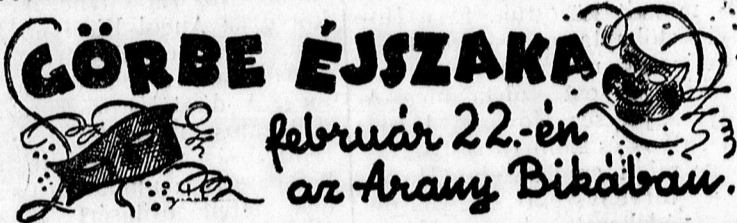 GÖRBE ÉJSZAKA
február 22.-én
az Arany Bikában.